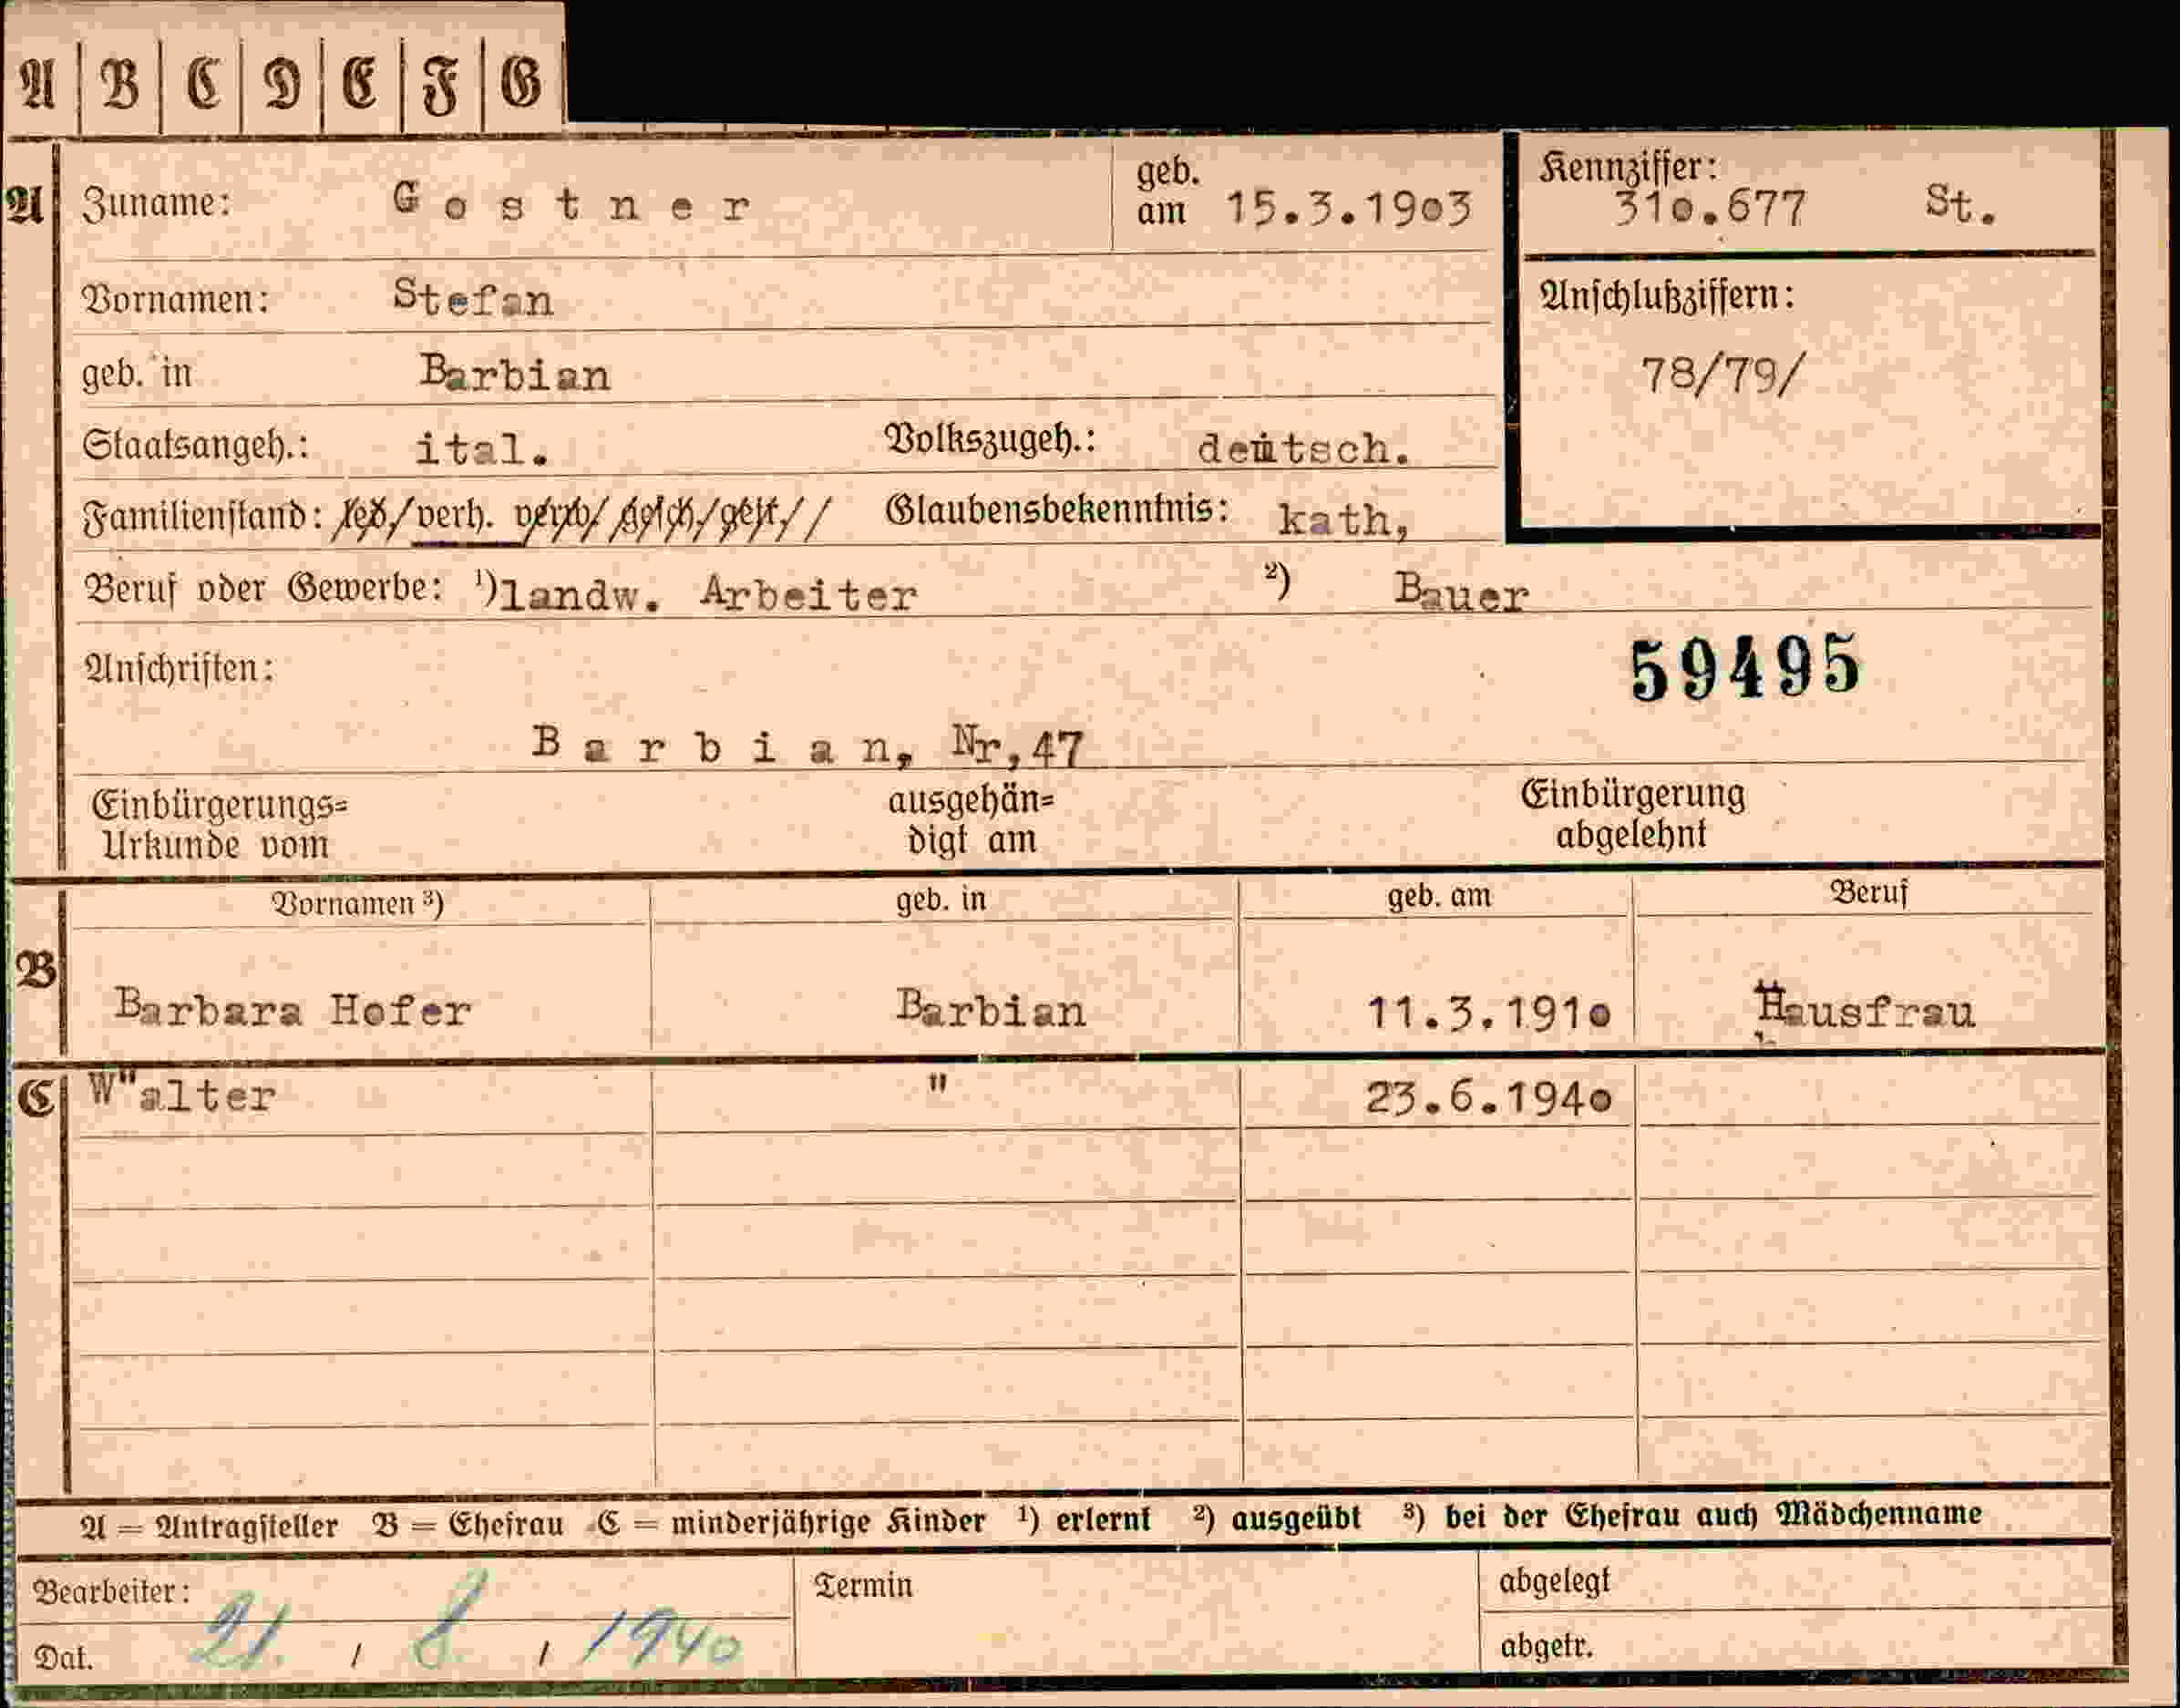 A B C D E F G
A Zuname: Gostner geb. am 15.3.1903 Kennziffer: 310.677 St.
Vornamen: Stefan Anschlußziffern:
geb. in Barbian 78/79/
Staatsangeh.: ital. Volkszugeh.: deutsch.
Familienstand: led/verh. verw/ gesch/getr// Glaubensbekenntnis: kath,
Beruf oder Gewerbe: ¹)landw. Arbeiter ²) Bauer
Anschriften: 59495
Barbian, Nr,47
Einbürgerungs= ausgehän= Einbürgerung
Urkunde vom digt am abgelehnt
Vornamen ³) geb. in geb. am Beruf
B Barbara Hofer Barbian 11.3.1910 Hausfrau
C W"alter " 23.6.1940
A = Antragsteller B = Ehefrau C = minderjährige Kinder ¹) erlernt ²) ausgeübt ³) bei der Ehefrau auch Mädchenname
Bearbeiter: Termin abgelegt
Dat. 21. / 8 / 1940 abgetr.